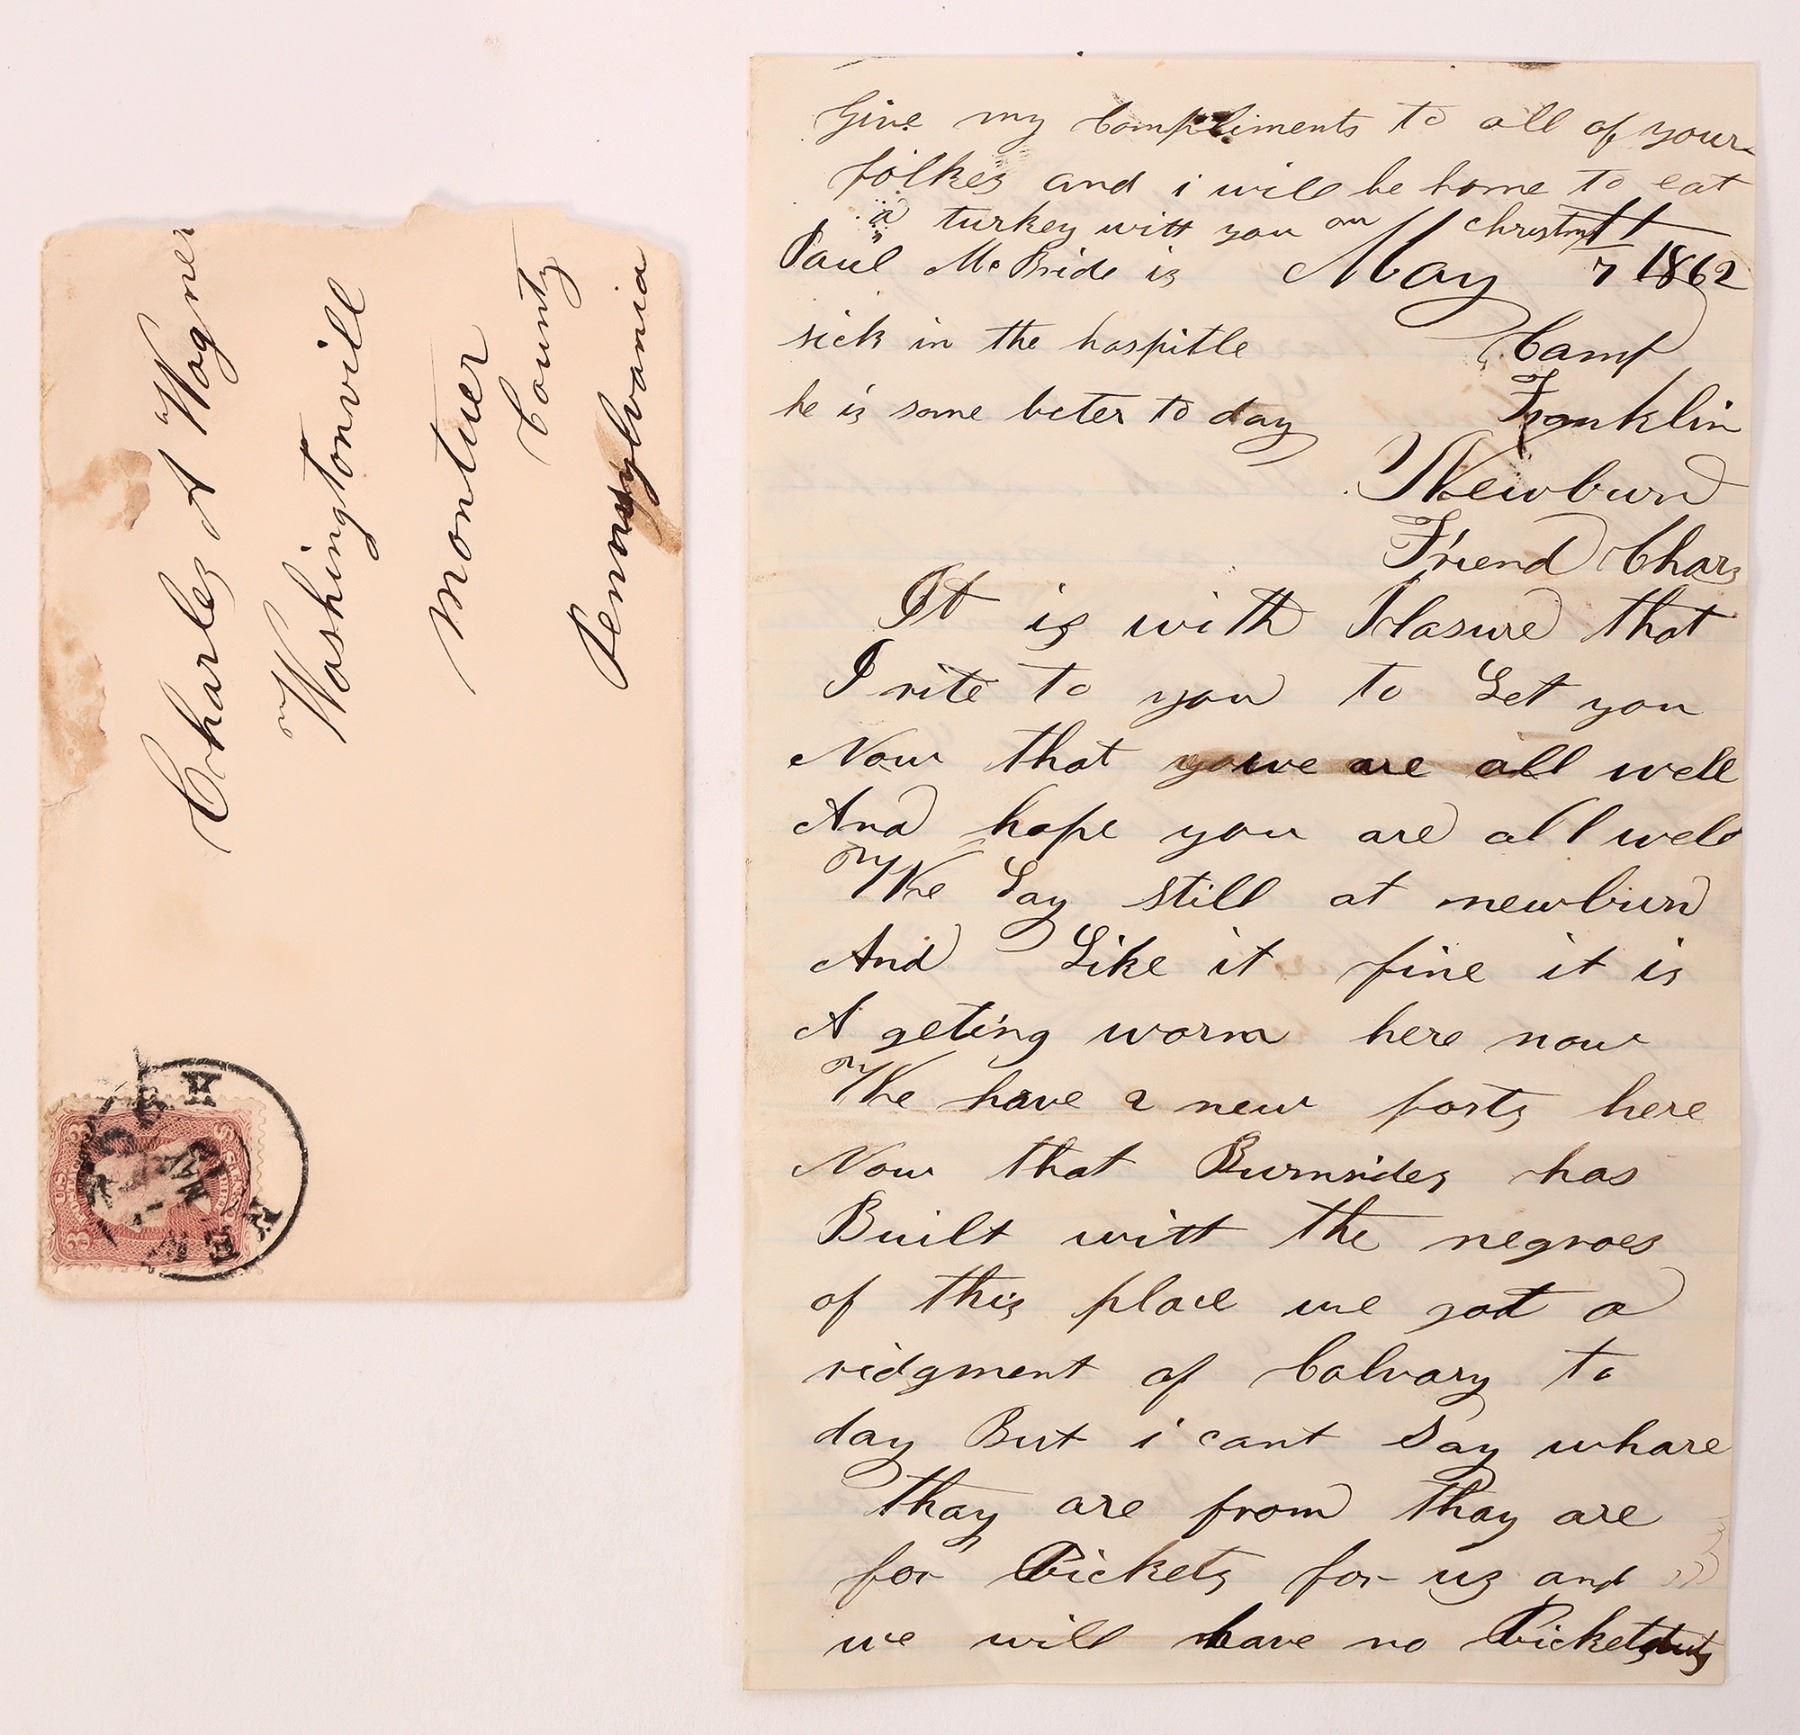 Charles A Wagner
Washingtonvill
Montuer
County
Pennsylvania
U.S.
3
3
Give my Compliments to all of your
folkes and i will be home to eat
a turkey witt you on Christm
Paul McBride is
sick in the hospitle
he is some beter to day
May 7 1862
Camp
Franklin
Newburn
Friend Chars
It is with Plasure that
I rite to you to Let you
Now that we are all well
And hope you are all well
We Lay still at newburn
And Like it fine it is
A geting worm here now
We have 2 new forts here
Now that Burnsides has
Built witt the negroes
of this place we got a
ridgment of Calvary to
day But i cant Say whare
thay are from thay are
for Pickets for us and
we will have no Pickets duty